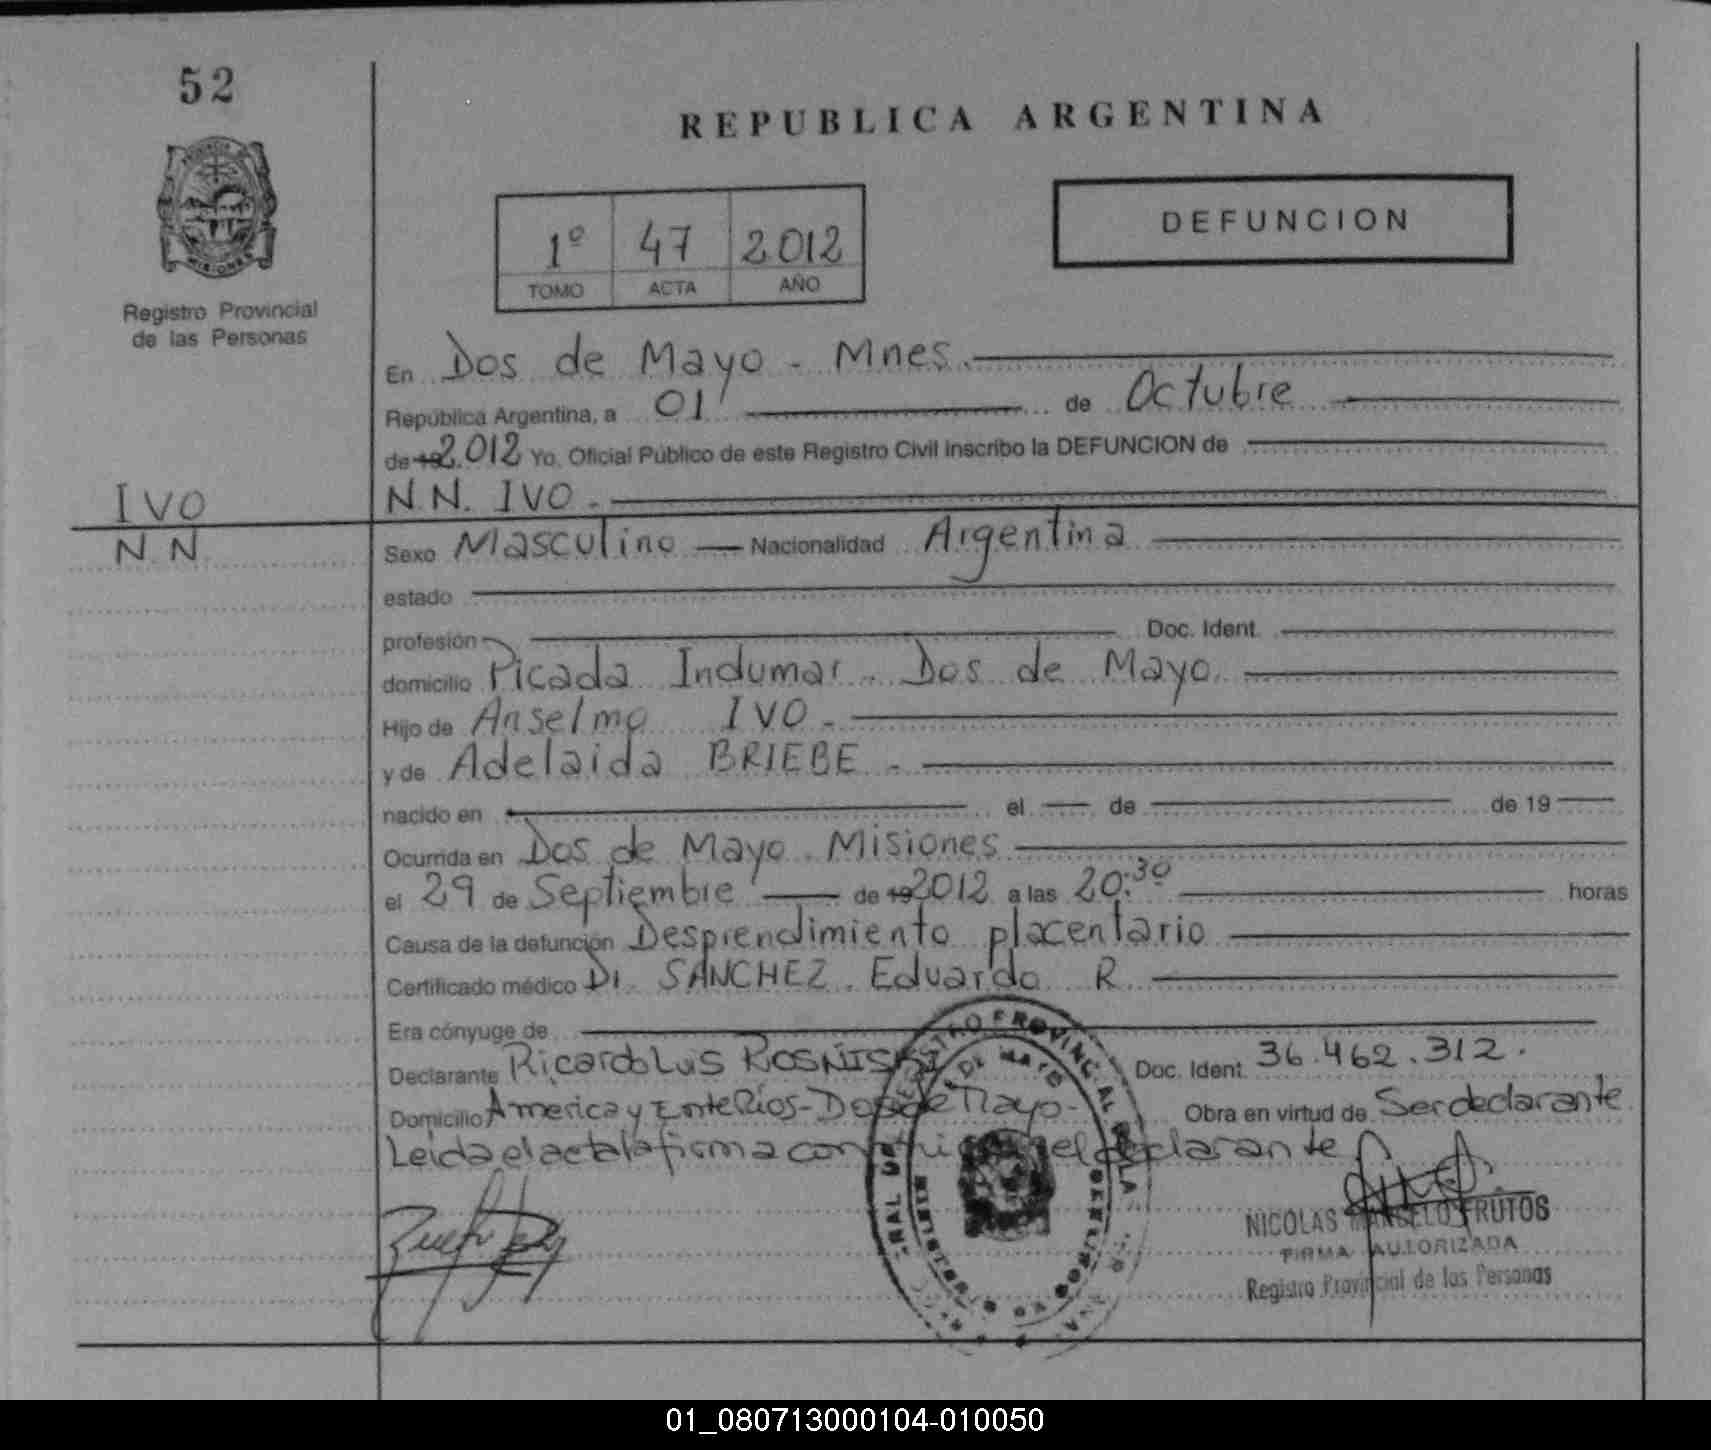 52
REPUBLICA ARGENTINA
PROVINCIA
MISIONES
Registro Provincial
de las Personas
1º 47 2012
TOMO ACTA AÑO
DEFUNCION
En Dos de Mayo - Mnes.
República Argentina, a 01 de Octubre
de 19 2.012 Yo, Oficial Público de este Registro Civil inscribo la DEFUNCION de
IVO
N.N. IVO.
N.N.
Sexo Masculino Nacionalidad Argentina
estado
profesión Doc. Ident.
domicilio Picada Indumar. Dos de Mayo.
Hijo de Anselmo IVO.
y de Adelaida BRIEBE.
nacido en el de de 19
Ocurrida en Dos de Mayo. Misiones
el 29 de Septiembre de 19 2012 a las 20:30 horas
Causa de la defunción Desprendimiento placentario
Certificado médico Dr. SANCHEZ. Eduardo R.
Era cónyuge de
Declarante Ricardo Luis ROSNISKI Doc. Ident. 36.462.312.
Domicilio America y Entre Rios - Dos de Mayo - Obra en virtud de Ser declarante
Leida el acta la firma el declarante
NICOLAS MARCELO FRUTOS
FIRMA AUTORIZADA
Registro Provincial de las Personas
01_080713000104-010050